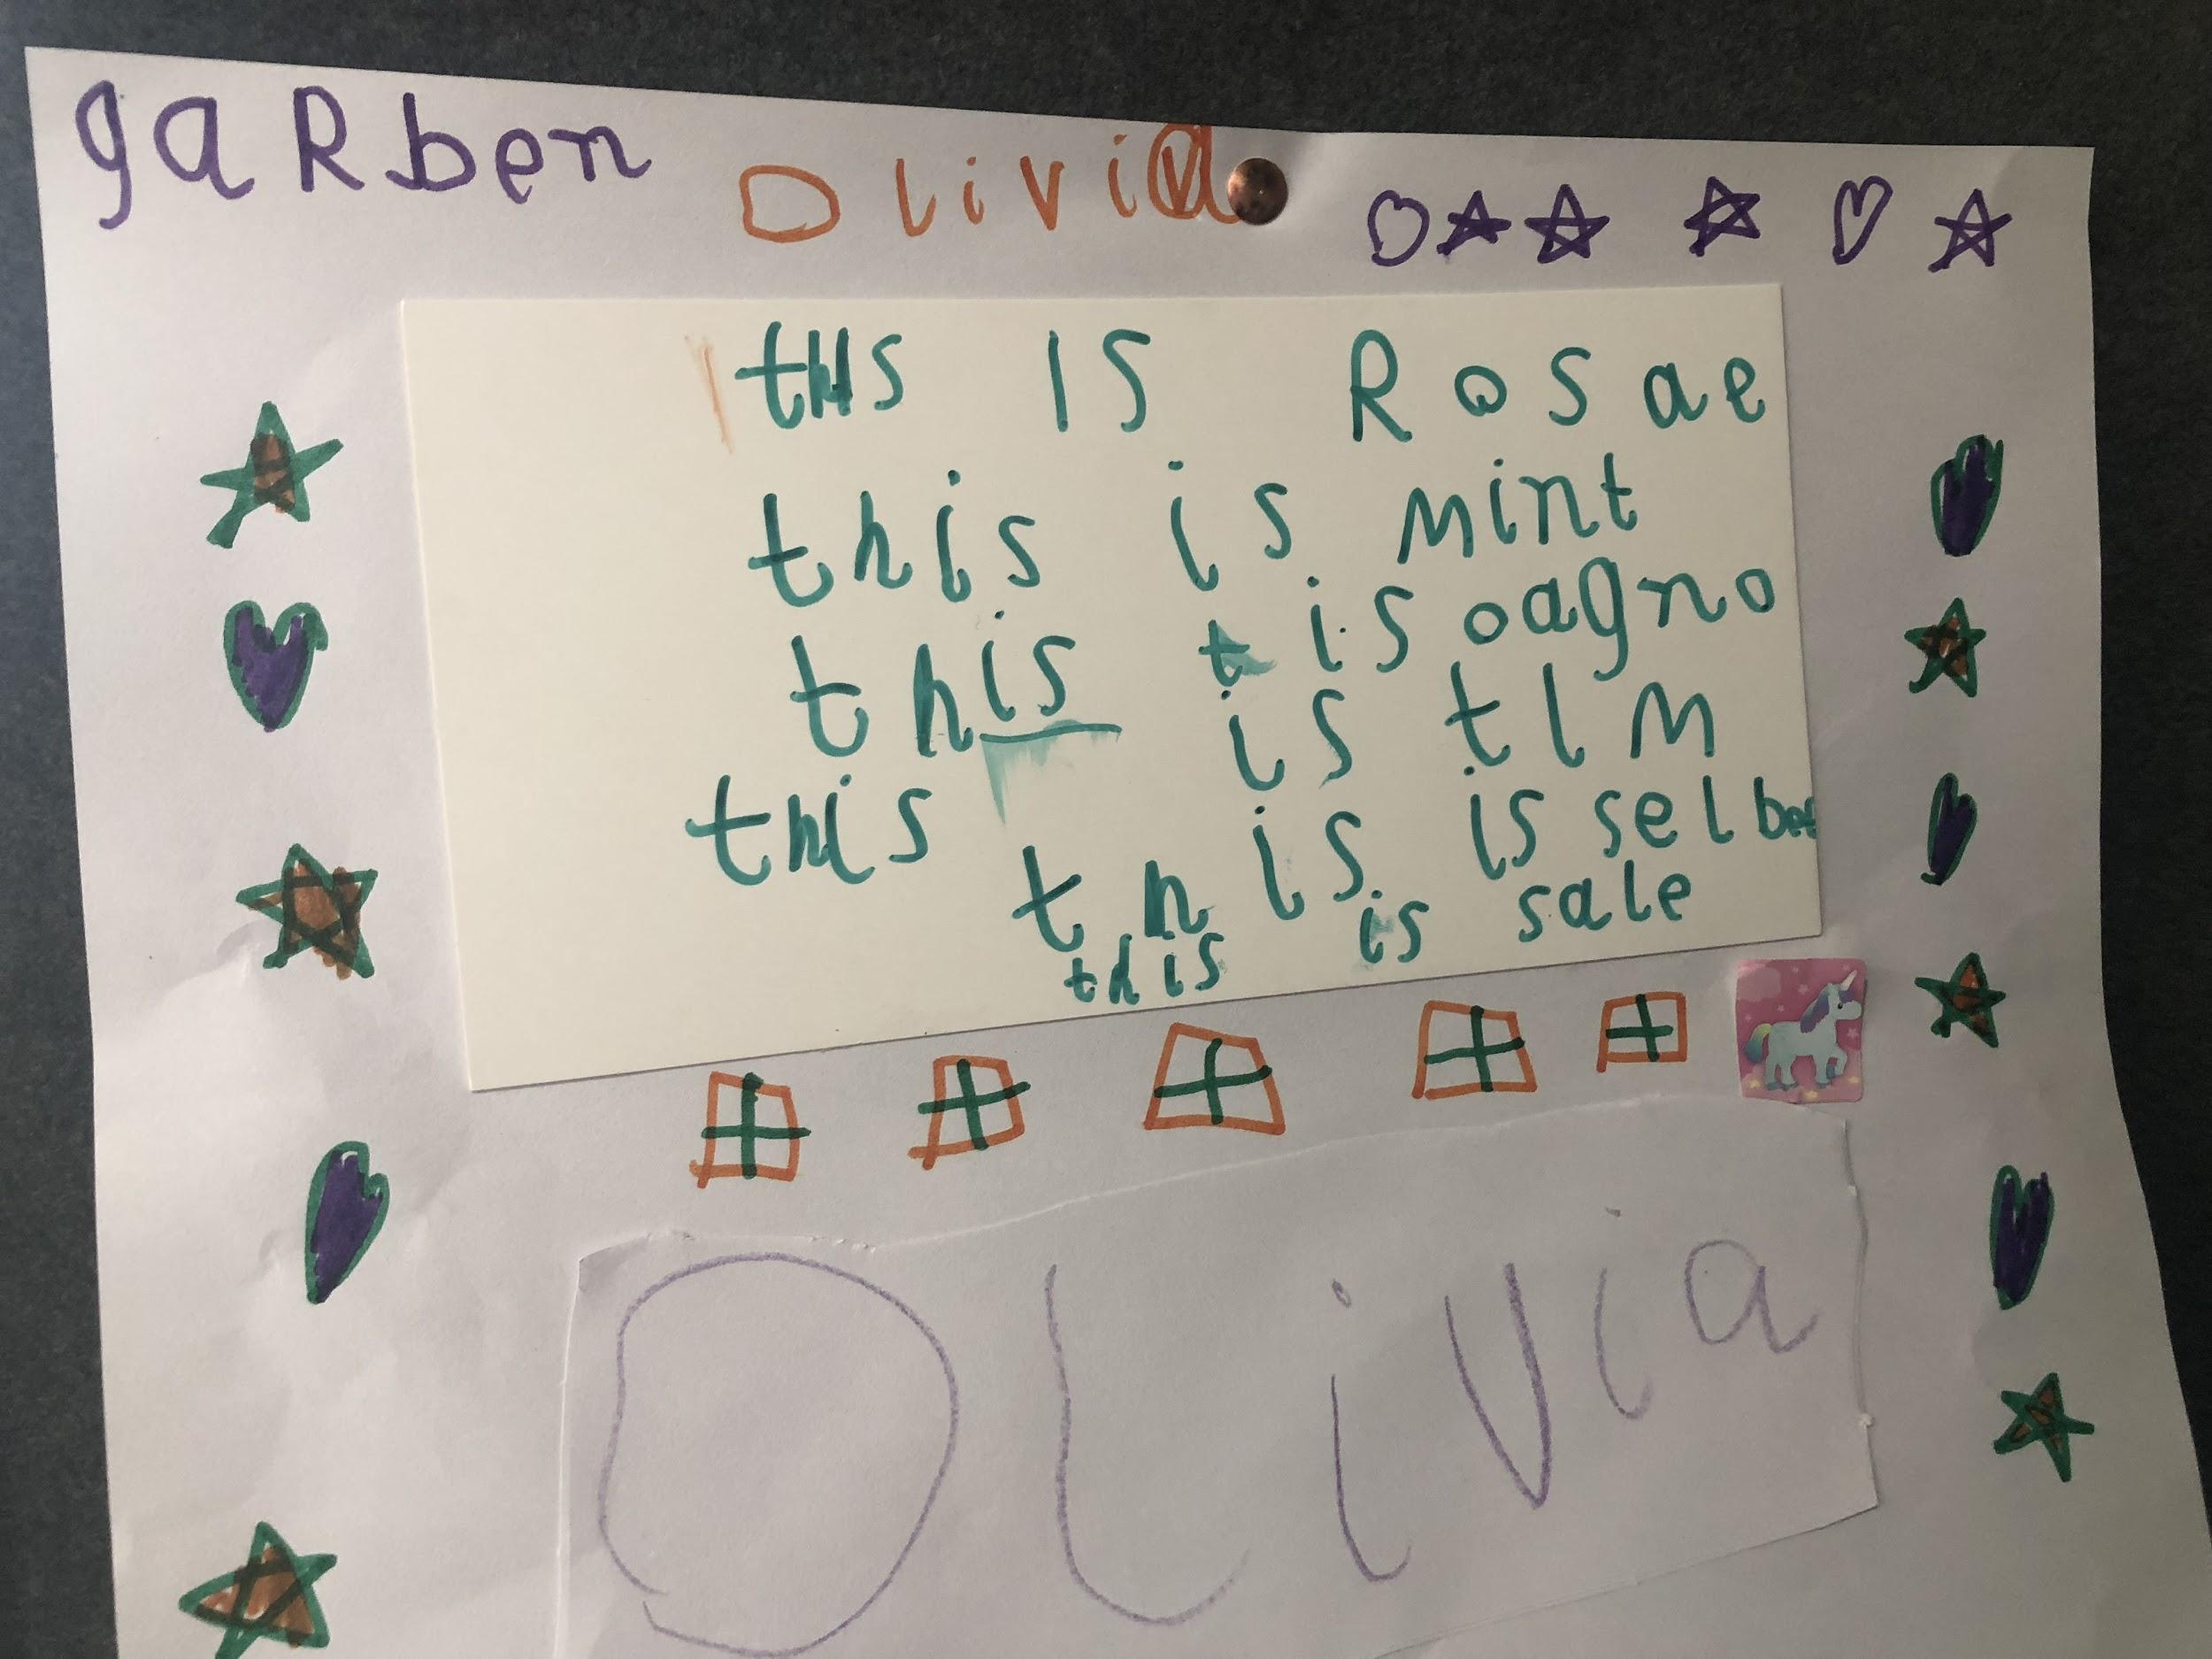 gaRben
Olivia
thS IS Rosae
this is mint
this t is oagno
this is tlm
this is selbee
this is sale
OLivia